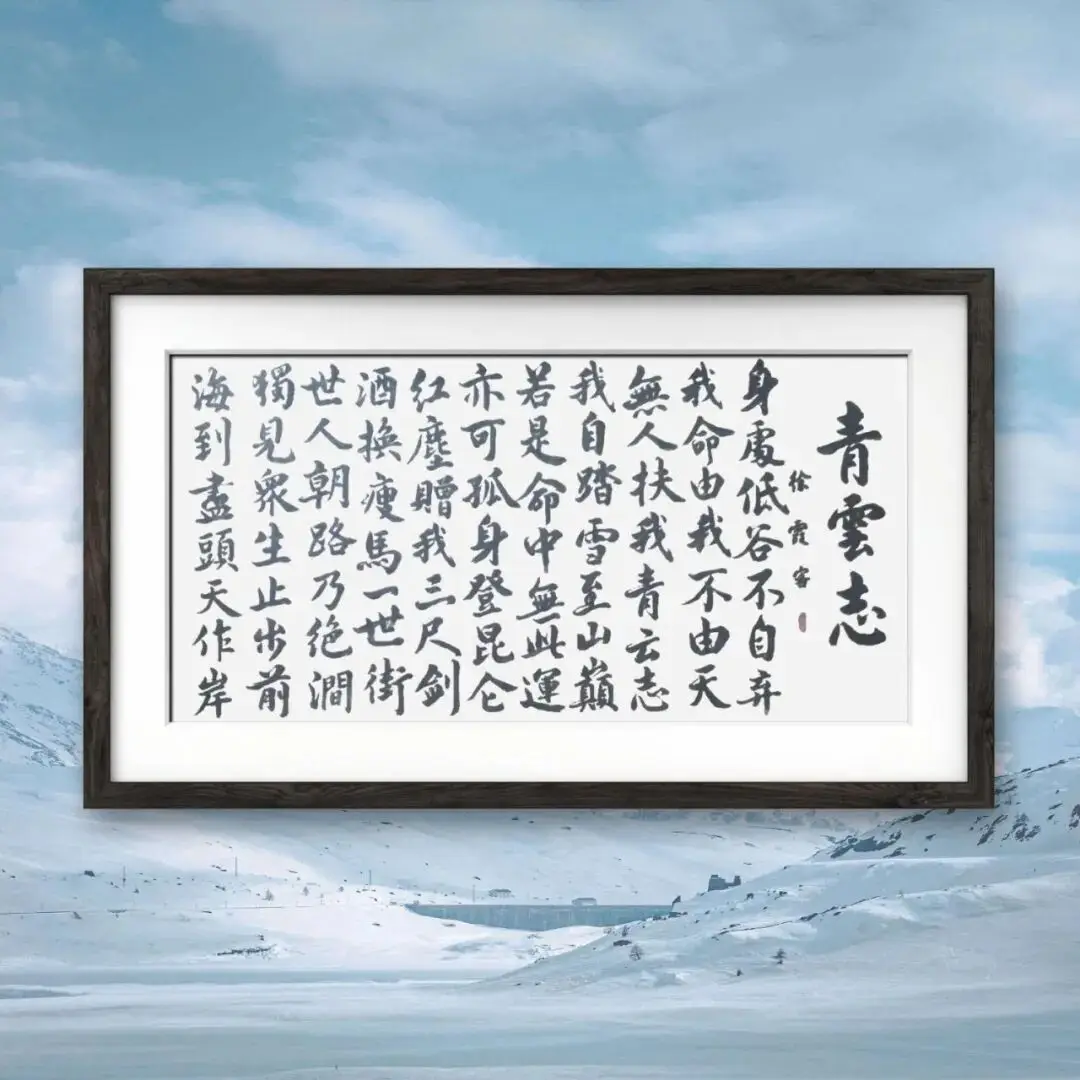 青雲志
徐霞客
身處低谷不自弃
我命由我不由天
無人扶我青云志
我自踏雪至山巔
若是命中無此運
亦可孤身登昆仑
红塵贈我三尺剑
酒換瘦馬一世街
世人朝路乃绝澗
獨見衆生止步前
海到盡頭天作岸